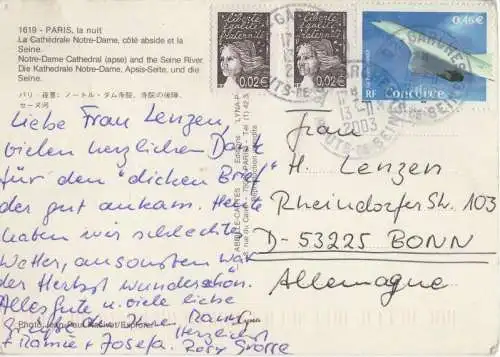 1619 - PARIS, la nuit
La Cathédrale Notre-Dame, côté abside et la
Seine.
Notre-Dame Cathedral (apse) and the Seine River.
Die Kathedrale Notre-Dame, Apsis-Seite, und die
Seine.
パリ - 夜景: ノートル・ダム寺院, 寺院の後陣,
セーヌ河
Liebe Frau Lenzen,
vielen herzlichen Dank
für den "dicken Brief"
der gut ankam. Heute
haben wir schlechtes
Wetter, ansonsten war
der Herbst wunderschön.
Alles gute u. viele liebe
Grüße
Herzlichst
Josefa.
Photo: Jean-Paul Nacivet/Explorer
ABEILLE-CARTES - Editions LYNA-P
Liberté
égalité
fraternité
RF 0,02€
Liberté
égalité
fraternité
RF 0,02€
0,46€
Concorde
RF
GARCHES
2003
HAUTS-DE-SEINE
Frau
H. Lenzen
Rheindorfer Str. 103
D-53225 BONN
Allemagne